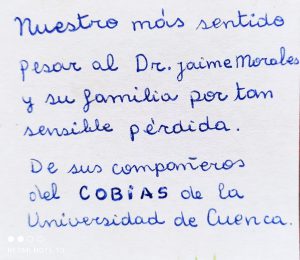 Nuestro más sentido
pesar al Dr. jaime Morales
y su familia por tan
sensible pérdida.
De sus compañeros
del COBiAS de la
Universidad de Cuenca.